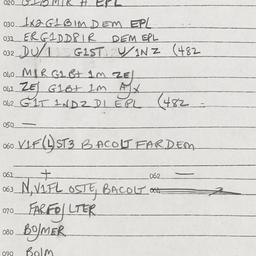 020 G1BMIR A EPL
030 1x2G1BIM DEM EPL
031 ERG1DDPIR DEM EPL
032 DU/1 G1ST U/1NZ (482
040 MIR G1Bt 1m ZEJ
041 ZEJ G1Bt 1m AJX
042 G1T 1ND2 D1 EPL (482
050 —
060 V1F(L)ST3 BACOLT FARDEM
061 + 062 —
063 N,V1FL OSTE, BACOLT
070 FARFOJLTER
080 BOJMER
090 BOIM